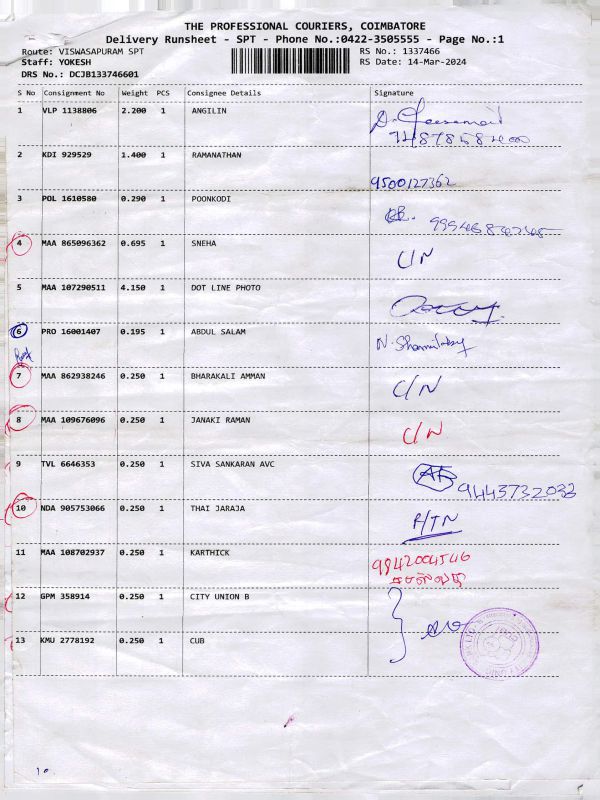 THE PROFESSIONAL COURIERS, COIMBATORE
Delivery Runsheet - SPT - Phone No.:0422-3505555 - Page No.:1
Route: VISWASAPURAM SPT RS No.: 1337466
Staff: YOKESH RS Date: 14-Mar-2024
DRS No.: DCJB133746601
S No Consignment No Weight PCS Consignee Details Signature
1 VLP 1138806 2.200 1 ANGILIN
2 KDI 929529 1.400 1 RAMANATHAN
9500127362
3 POL 1610580 0.290 1 POONKODI
4 MAA 865096362 0.695 1 SNEHA C/N
5 MAA 107290511 4.150 1 DOT LINE PHOTO
6 PRO 16001407 0.195 1 ABDUL SALAM
7 MAA 862938246 0.250 1 BHARAKALI AMMAN C/N
8 MAA 109676096 0.250 1 JANAKI RAMAN C/N
9 TVL 6646353 0.250 1 SIVA SANKARAN AVC
9443732033
10 NDA 905753066 0.250 1 THAI JARAJA R/TN
11 MAA 108702937 0.250 1 KARTHICK 9942004546
12 GPM 358914 0.250 1 CITY UNION B
13 KMU 2778192 0.250 1 CUB
10